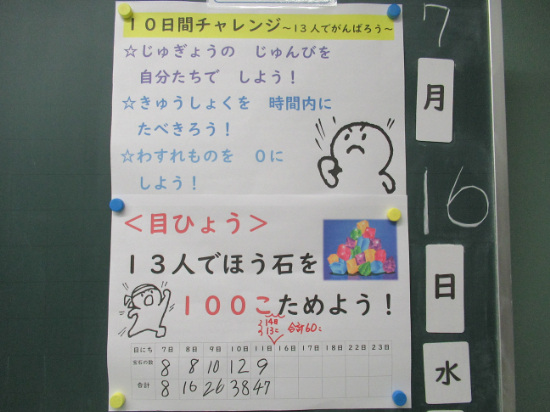 10日間チャレンジ～13人でがんばろう～
☆じゅぎょうの じゅんびを
自分たちで しよう！
☆きゅうしょくを 時間内に
たべきろう！
☆わすれものを 0に
しよう！
＜目ひょう＞
13人でほう石を
100こためよう！
14日
13こ 合計60こ
日にち 7日 8日 9日 10日 11日 16日 17日 18日 22日 23日
宝石の数 8 8 10 12 9
合計 8 16 26 38 47
7
月
16
日
水